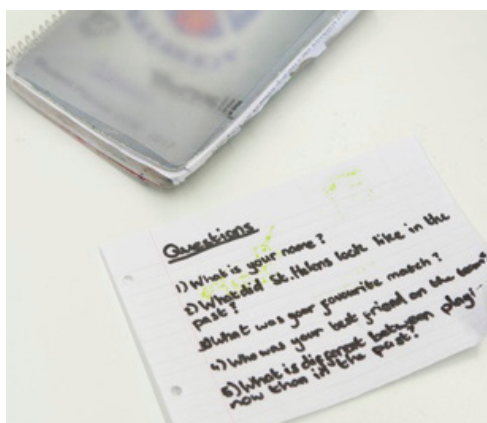 Questions
1) What is your name?
2) What did St. Helens look like in the
past?
3) What was your favourite match?
4) Who was your best friend on the team?
5) What is different between playi-
now than in the past?